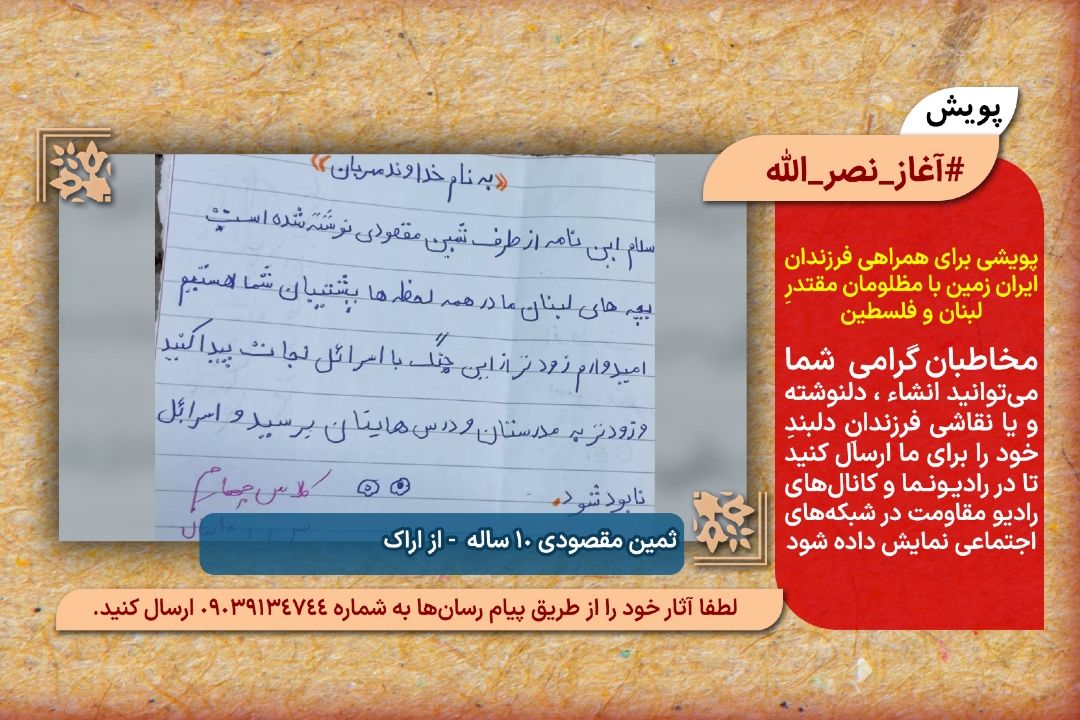 پویش
#آغاز_نصر_الله
پویشی برای همراهی فرزندان
ایران زمین با مظلومان مقتدرِ
لبنان و فلسطین
مخاطبان گرامی شما
می‌توانید انشاء ، دلنوشته
و یا نقاشی فرزندانِ دلبندِ
خود را برای ما ارسال کنید
تا در رادیونما و کانال‌های
رادیو مقاومت در شبکه‌های
اجتماعی نمایش داده شود
«به نام خداوند مهربان»
سلام این نامه از طرف ثمین مقصودی نوشته شده است
بچه های لبنان ما در همه لحظه ها پشتیبان شما هستیم
امیدوارم زودتر از این جنگ با اسرائل نجات پیدا کنید
و زودتر به مدرستان و درس هایتان برسید و اسرائل
نابود شود.
کلاس چهارم
ثمین مقصودی ۱۰ ساله - از اراک
لطفا آثار خود را از طریق پیام رسان‌ها به شماره ۰۹۰۳۹۱۳٤۷٤٤ ارسال کنید.